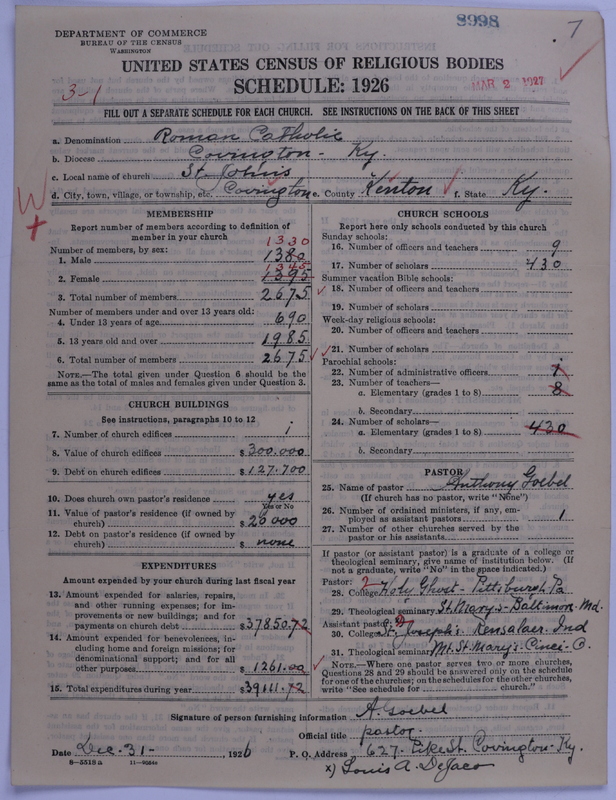 8998
7
DEPARTMENT OF COMMERCE
BUREAU OF THE CENSUS
WASHINGTON
UNITED STATES CENSUS OF RELIGIOUS BODIES
SCHEDULE: 1926
MAR 2 1927
3-1
FILL OUT A SEPARATE SCHEDULE FOR EACH CHURCH. SEE INSTRUCTIONS ON THE BACK OF THIS SHEET
a. Denomination Roman Catholic
b. Diocese Covington - Ky.
c. Local name of church St. Johns
d. City, town, village, or township, etc. Covington e. County Kenton f. State Ky.
MEMBERSHIP
Report number of members according to definition of
member in your church
Number of members, by sex: 1330
1. Male 1380
1345
2. Female 1395
3. Total number of members 2675
Number of members under and over 13 years old:
4. Under 13 years of age 690
5. 13 years old and over 1985
6. Total number of members 2675
NOTE.—The total given under Question 6 should be
same as the total of males and females given under Question 3.
CHURCH BUILDINGS
See instructions, paragraphs 10 to 12
7. Number of church edifices 1
8. Value of church edifices $ 300.000
9. Debt on church edifices $ 127.700
10. Does church own pastor's residence yes
Yes or No
11. Value of pastor's residence (if owned by
church) $ 20 000
12. Debt on pastor's residence (if owned by
church) $ none
EXPENDITURES
Amount expended by your church during last fiscal year
13. Amount expended for salaries, repairs,
and other running expenses; for im-
provements or new buildings; and for
payments on church debt $ 37850.72
14. Amount expended for benevolences, in-
cluding home and foreign missions; for
denominational support; and for all
other purposes $ 1261.00
15. Total expenditures during year $ 39111.72
CHURCH SCHOOLS
Report here only schools conducted by this church
Sunday schools:
16. Number of officers and teachers 9
17. Number of scholars 430
Summer vacation Bible schools:
18. Number of officers and teachers
19. Number of scholars
Week-day religious schools:
20. Number of officers and teachers
21. Number of scholars
Parochial schools:
22. Number of administrative officers 1
23. Number of teachers—
a. Elementary (grades 1 to 8) 8
b. Secondary
24. Number of scholars—
a. Elementary (grades 1 to 8) 430
b. Secondary
PASTOR
25. Name of pastor Anthony Goebel
(If church has no pastor, write "None")
26. Number of ordained ministers, if any, em-
ployed as assistant pastors 1
27. Number of other churches served by the
pastor or his assistants
If pastor (or assistant pastor) is a graduate of a college or
theological seminary, give name of institution below. (If
not a graduate, write "No" in the space indicated.)
Pastor: 2
28. College Holy Ghost - Pittsburgh, Pa
29. Theological seminary St. Mary's - Baltimore Md.
Assistant pastor:
30. College St. Joseph's Rensalaer, Ind
31. Theological seminary Mt. St. Mary's - Cinci - O.
NOTE.—Where one pastor serves two or more churches,
Questions 28 and 29 should be answered only on the schedule
for one of the churches; on the schedules for the other churches,
write "See schedule for church."
Signature of person furnishing information A. Goebel
Official title pastor
Date Dec - 31 - , 1926 P. O. Address 627 - Pike St. Covington - Ky.
8—5518a 11—9034a
x) Louis A. DeJaco